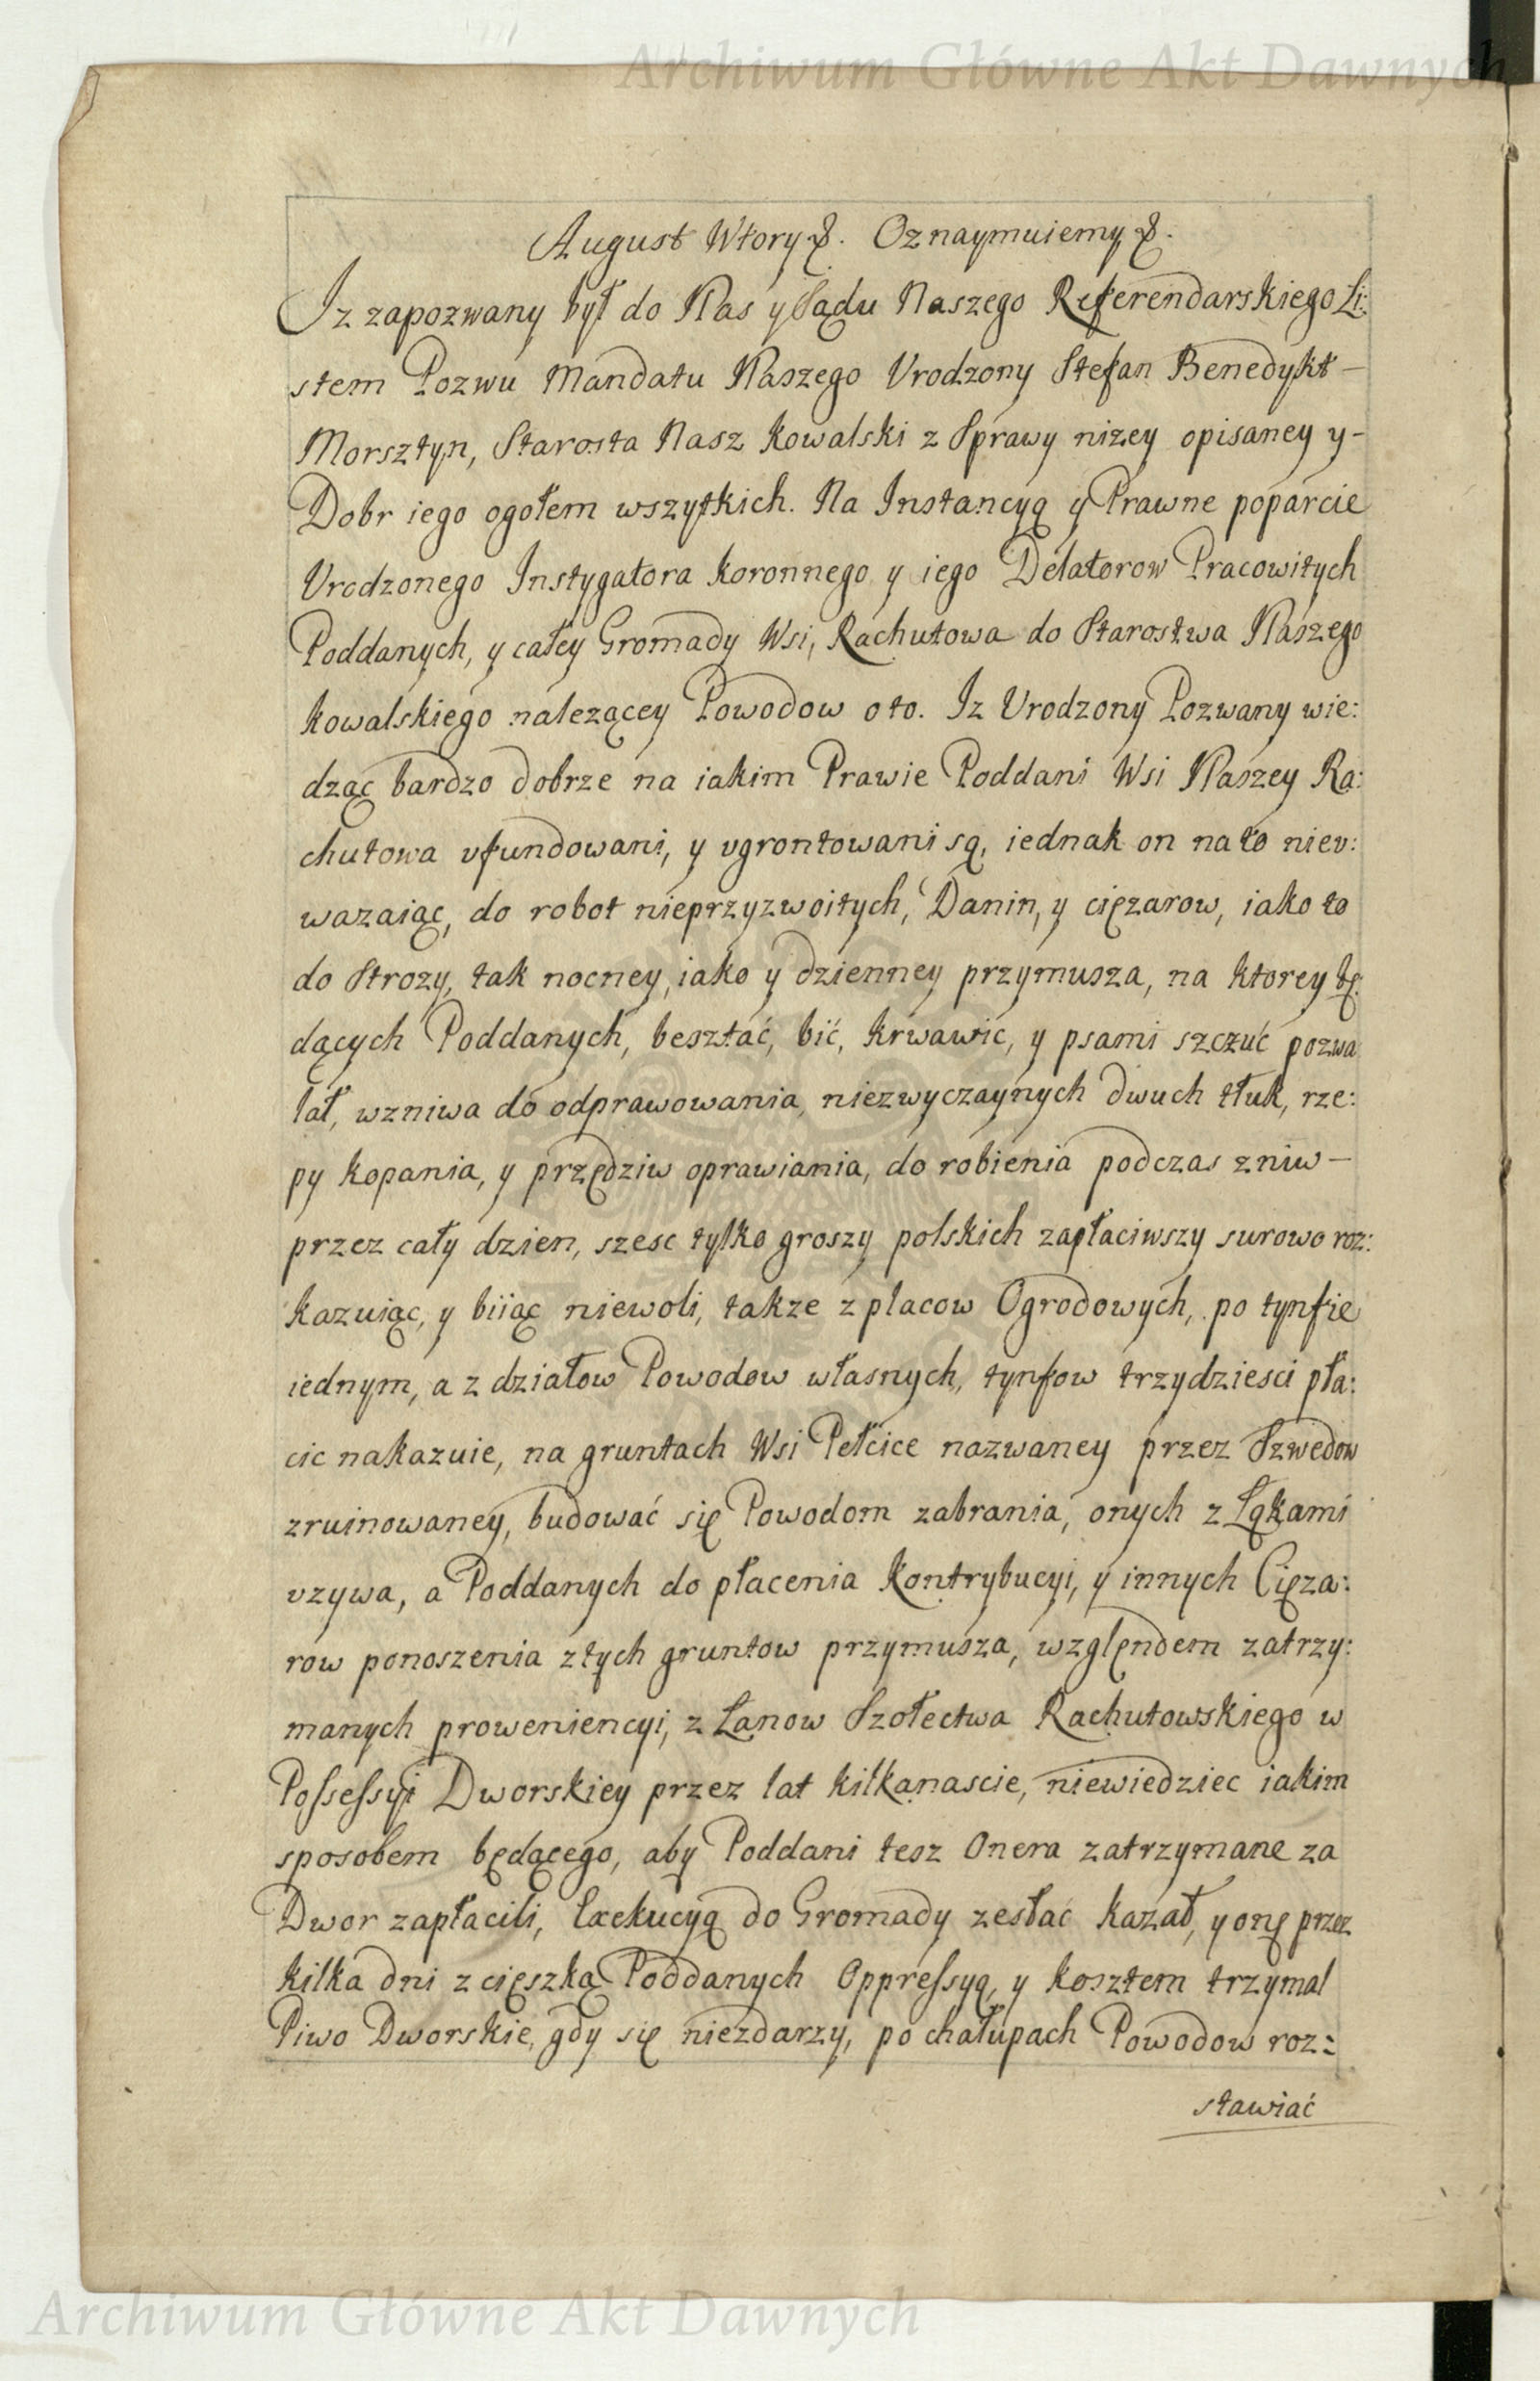 Archiwum Główne Akt Dawnych
August Wtory &. Oznaymuiemy &.
Iz zapozwany był do Nas y Sądu Naszego Referendarskiego Li:
stem Pozwu Mandatu Naszego Vrodzony Stefan Benedykt —
Morsztyn, Starosta Nasz Kowalski z Sprawy nizey opisaney y -
Dobr iego ogołem wszytkich. Na Instancyą y Prawne poparcie
Vrodzonego Instygatora Koronnego y iego Delatorow Pracowitych
Poddanych, y całey Gromady Wsi, Rachutowa do Starostwa Naszego
Kowalskiego nalezącey Powodow oto. Iz Vrodzony Pozwany wie:
dząc bardzo dobrze na iakim Prawie Poddani Wsi Naszey Ra:
chutowa vfundowani, y vgrontowani są, iednak on na to niev:
wazaiąc, do robot nieprzyzwoitych, Danin, y cięzarow, iako to
do Strozy, tak nocney, iako y dzienney przymusza, na ktorey bę:
dących Poddanych, besztać, bić, krwawic, y psami szczuć pozwa
lał, wzniwa do odprawowania niezwyczaynych dwuch tłuk, rze:
py kopania, y przędziw oprawiania, do robienia podczas zniw —
przez cały dzien, szesc tylko groszy polskich zapłaciwszy surowo roz:
kazuiąc, y biiąc niewoli, takze z placow Ogrodowych, po tynfie
iednym, a z działow Powodow własnych, tynfow trzydziesci pła:
cic nakazuie, na gruntach Wsi Pełcice nazwaney przez Szwedow
zruinowaney, budować się Powodom zabrania, onych z Łąkami
vzywa, a Poddanych do płacenia Kontrybucyi, y innych Cięza:
row ponoszenia z tych gruntow przymusza, względem zatrzy:
manych proweniencyi, z Łanow Szołectwa Rachutowskiego w
Possessyi Dworskiey przez lat kilkanascie, niewiedziec iakim
sposobem będącego, aby Poddani tesz Onera zatrzymane za
Dwor zapłacili, Exekucyą do Gromady zesłac kazał, y onę przez
kilka dni z cięszką Poddanych Oppressyą, y kosztem trzymal
Piwo Dworskie, gdy się niezdarzy, po chałupach Powodow roz:
stawiać
Archiwum Główne Akt Dawnych